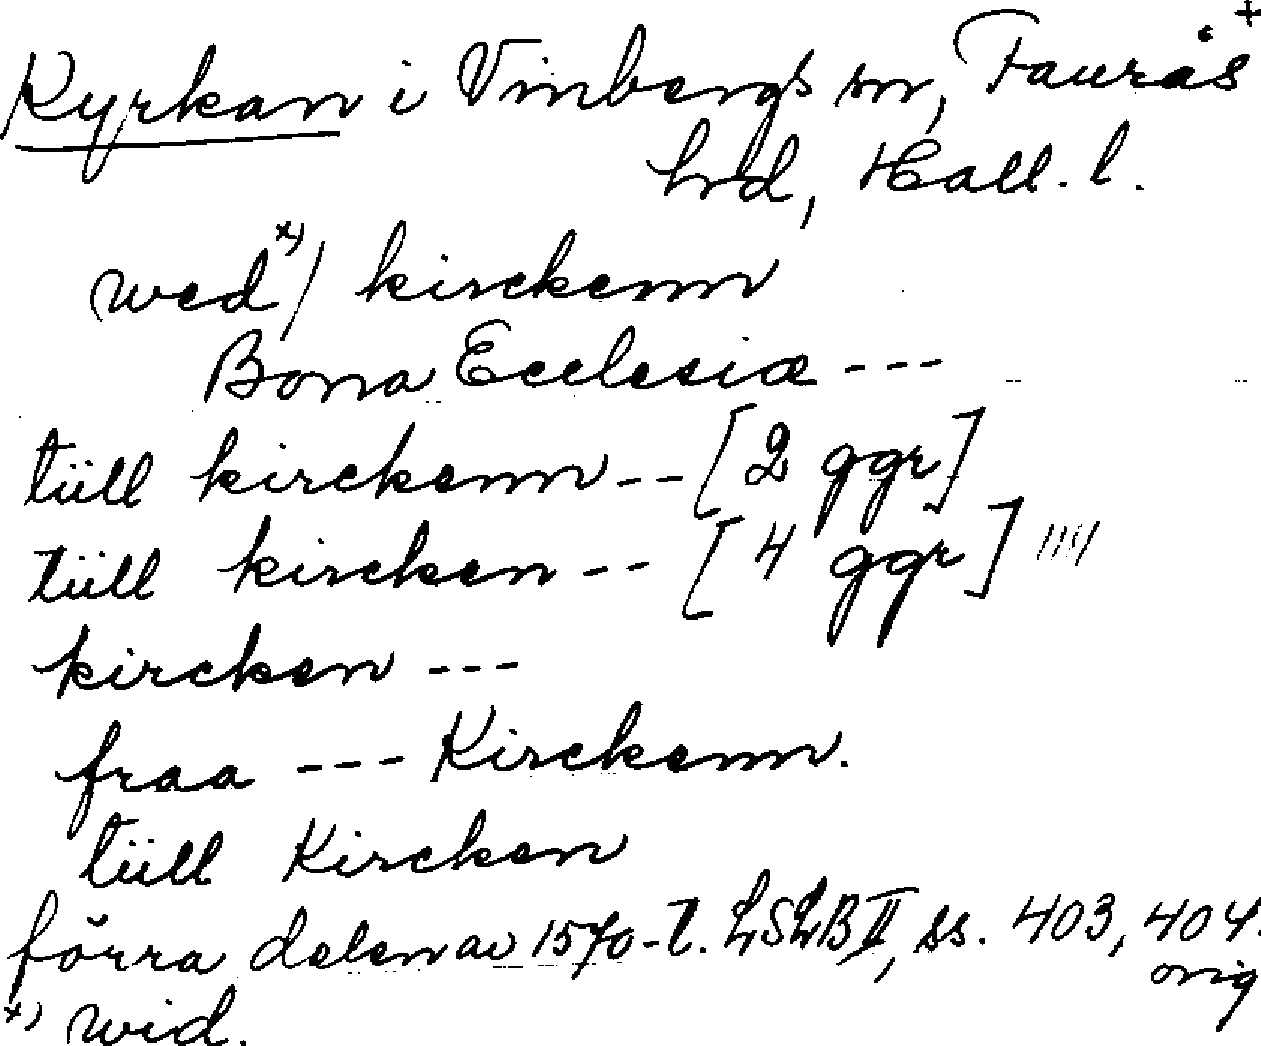 Kyrkan i Vinbergs sn, Faurås +
hrd, Hall. l.
wed x)/ kirckenn
Bona Ecclesiæ ---
tüll kirckenn -- [2 ggr]
tüll kircken -- [4 ggr] ////
kircken ---
fraa --- Kirckenn.
tüll Kircken
förra delen av 1570-t. LSLB II, ss. 403, 404.
orig
x) wid.